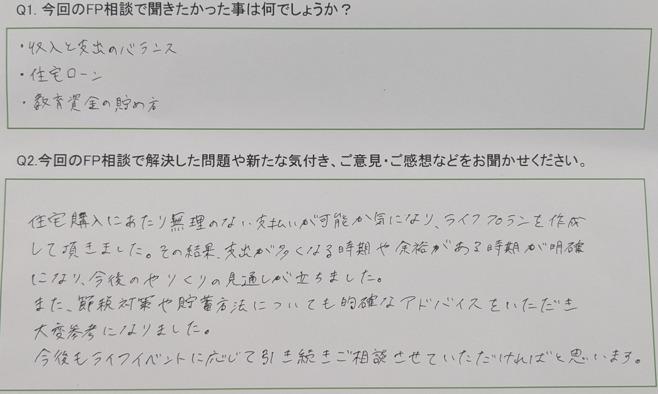 Q1. 今回のFP相談で聞きたかった事は何でしょうか？
・収入と支出のバランス
・住宅ローン
・教育資金の貯め方
Q2.今回のFP相談で解決した問題や新たな気付き、ご意見・ご感想などをお聞かせください。
住宅購入にあたり無理のない支払いが可能か気になり、ライフプランを作成
して頂きました。その結果、支出が多くなる時期や余裕がある時期が明確
になり、今後のやりくりの見通しが立ちました。
また、節税対策や貯蓄方法についても的確なアドバイスをいただき
大変参考になりました。
今後もライフイベントに応じて引き続きご相談させていただければと思います。